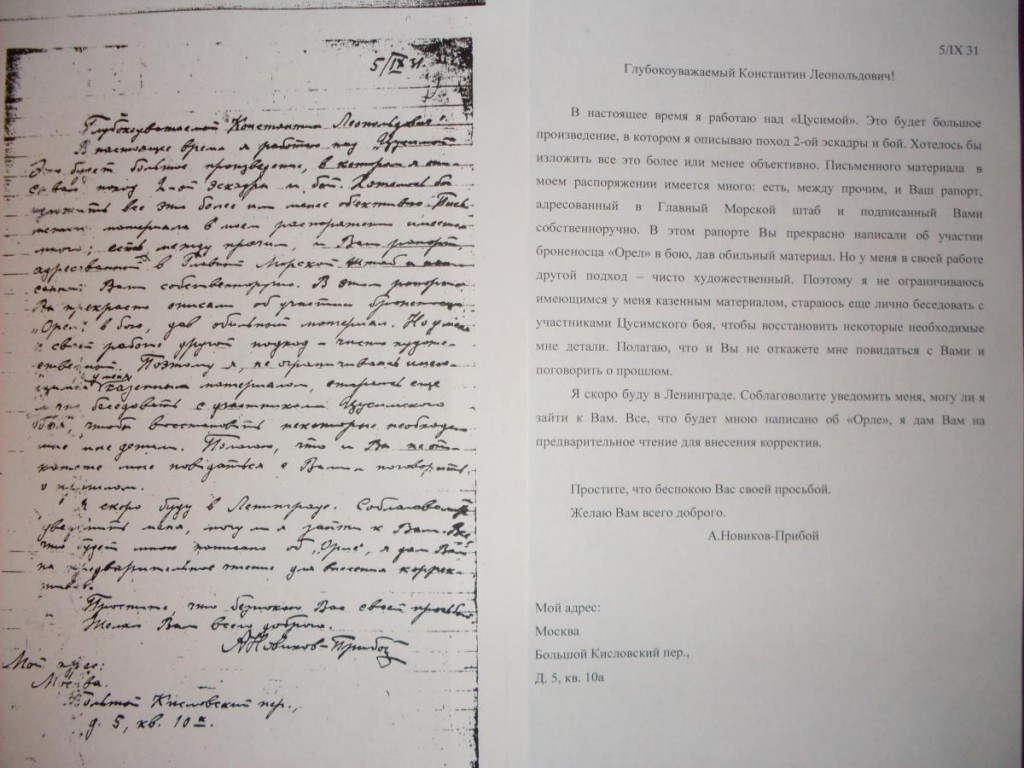 5/IX 31.
Глубокоуважаемый Константин Леопольдович!
В настоящее время я работаю над „Цусимой".
Это будет большое произведение, в котором я опи-
сываю поход 2-ой эскадры и бой. Хотелось бы
изложить все это более или менее объективно. Пись-
менного материала в моем распоряжении имеется
много: есть, между прочим, и Ваш рапорт,
адресованный в Главный Морской штаб и подпи-
санный Вами собственноручно. В этом рапорте
Вы прекрасно описали об участии броненосца
„Орел" в бою, дав обильный материал. Но у меня
в своей работе другой подход – чисто художе-
ственный. Поэтому я, не ограничиваясь имею-
щимся у меня казенным материалом, стараюсь еще
лично беседовать с участниками Цусимского
боя, чтобы восстановить некоторые необходи-
мые мне детали. Полагаю, что и Вы не от-
кажете мне повидаться с Вами и поговорить
о прошлом.
Я скоро буду в Ленинграде. Соблаговолите
уведомить меня, могу ли я зайти к Вам. Все,
что будет мною написано об „Орле", я дам Вам
на предварительное чтение для внесения коррек-
тивов.
Простите, что беспокою Вас своей просьбой.
Желаю Вам всего доброго.
А.Новиков-Прибой
Мой адрес:
Москва.
Большой Кисловский пер.,
д. 5, кв. 10а.
5/IX 31
Глубокоуважаемый Константин Леопольдович!
В настоящее время я работаю над «Цусимой». Это будет большое
произведение, в котором я описываю поход 2-ой эскадры и бой. Хотелось бы
изложить все это более или менее объективно. Письменного материала в
моем распоряжении имеется много: есть, между прочим, и Ваш рапорт,
адресованный в Главный Морской штаб и подписанный Вами
собственноручно. В этом рапорте Вы прекрасно написали об участии
броненосца «Орел» в бою, дав обильный материал. Но у меня в своей работе
другой подход – чисто художественный. Поэтому я не ограничиваюсь
имеющимся у меня казенным материалом, стараюсь еще лично беседовать с
участниками Цусимского боя, чтобы восстановить некоторые необходимые
мне детали. Полагаю, что и Вы не откажете мне повидаться с Вами и
поговорить о прошлом.
Я скоро буду в Ленинграде. Соблаговолите уведомить меня, могу ли я
зайти к Вам. Все, что будет мною написано об «Орле», я дам Вам на
предварительное чтение для внесения корректив.
Простите, что беспокою Вас своей просьбой.
Желаю Вам всего доброго.
А.Новиков-Прибой
Мой адрес:
Москва
Большой Кисловский пер.,
Д. 5, кв. 10а